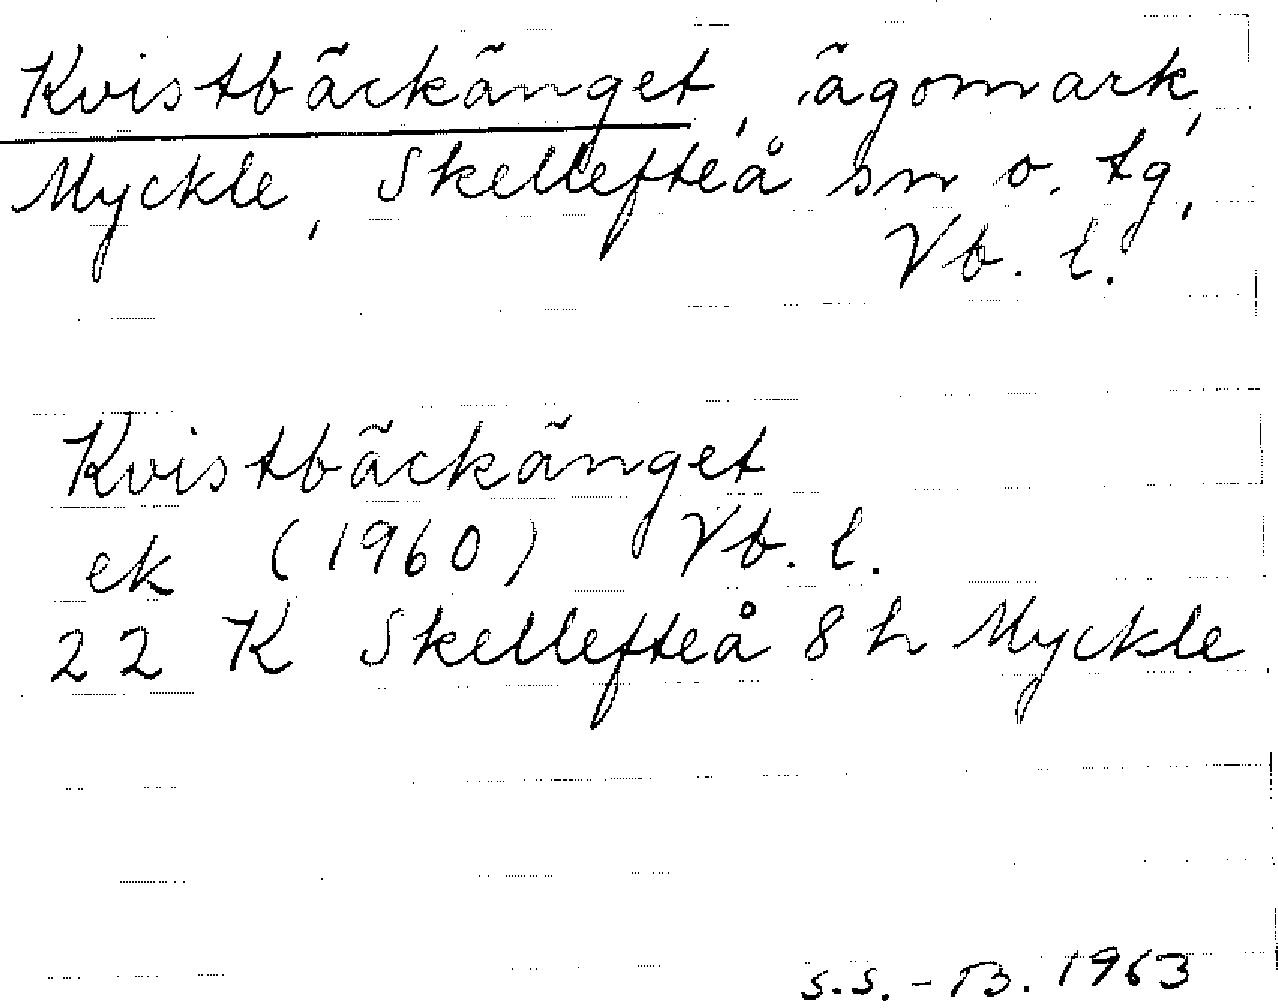 Kvistbäckänget, ägomark,
Myckle, Skellefteå sn o. tg,
Vb. l.
Kvistbäckänget
ek (1960) Vb. l.
22 K Skellefteå 8 h Myckle
S.S. - TB. 1963